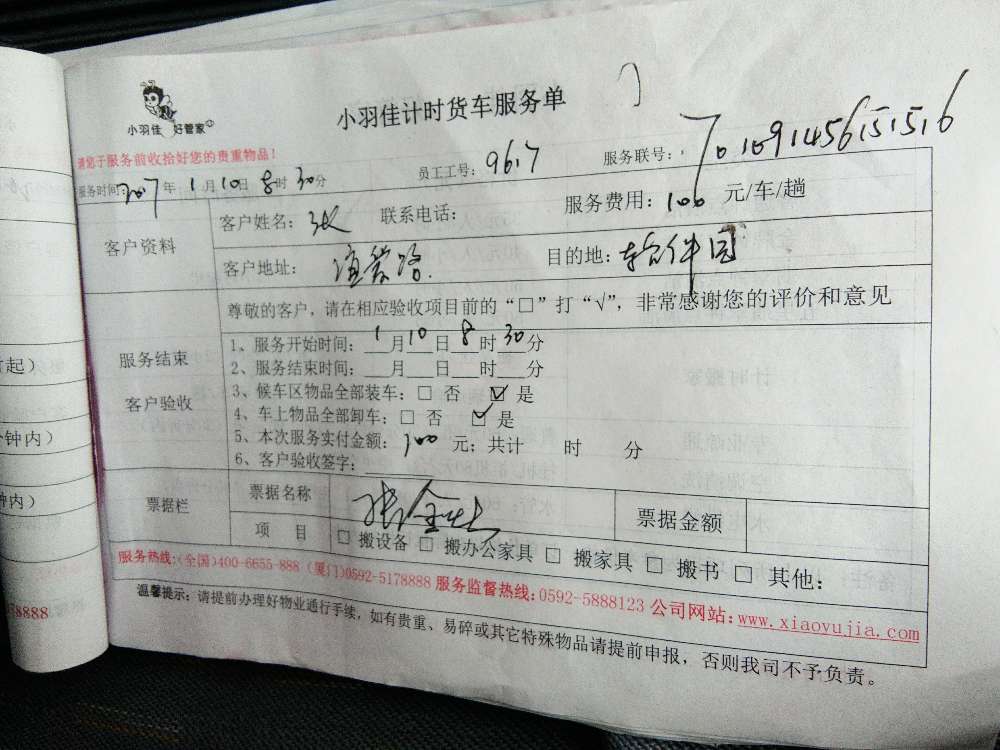 小羽佳 好管家
小羽佳计时货车服务单
请您于服务前收拾好您的贵重物品！
服务时间：2017年1月10日8时30分 员工工号：9617 服务联号：701091456151516
客户资料
客户姓名：张 联系电话： 服务费用：100 元/车/趟
客户地址： 目的地：软件园
尊敬的客户，请在相应验收项目前的“□”打“√”，非常感谢您的评价和意见
服务结束
客户验收
1、服务开始时间：1月10日8时30分
2、服务结束时间：___月___日___时___分
3、候车区物品全部装车：□ 否 ☑ 是
4、车上物品全部卸车：□ 否 ☑ 是
5、本次服务实付金额：100 元；共计 时 分
6、客户验收签字：
票据栏
票据名称 票据金额
项 目 □ 搬设备 □ 搬办公家具 □ 搬家具 □ 搬书 □ 其他：
服务热线：(全国)400-6655-888 (厦门)0592-5178888 服务监督热线：0592-5888123 公司网站：www.xiaoyujia.com
温馨提示：请提前办理好物业通行手续，如有贵重、易碎或其它特殊物品请提前申报，否则我司不予负责。
钟内）
78888